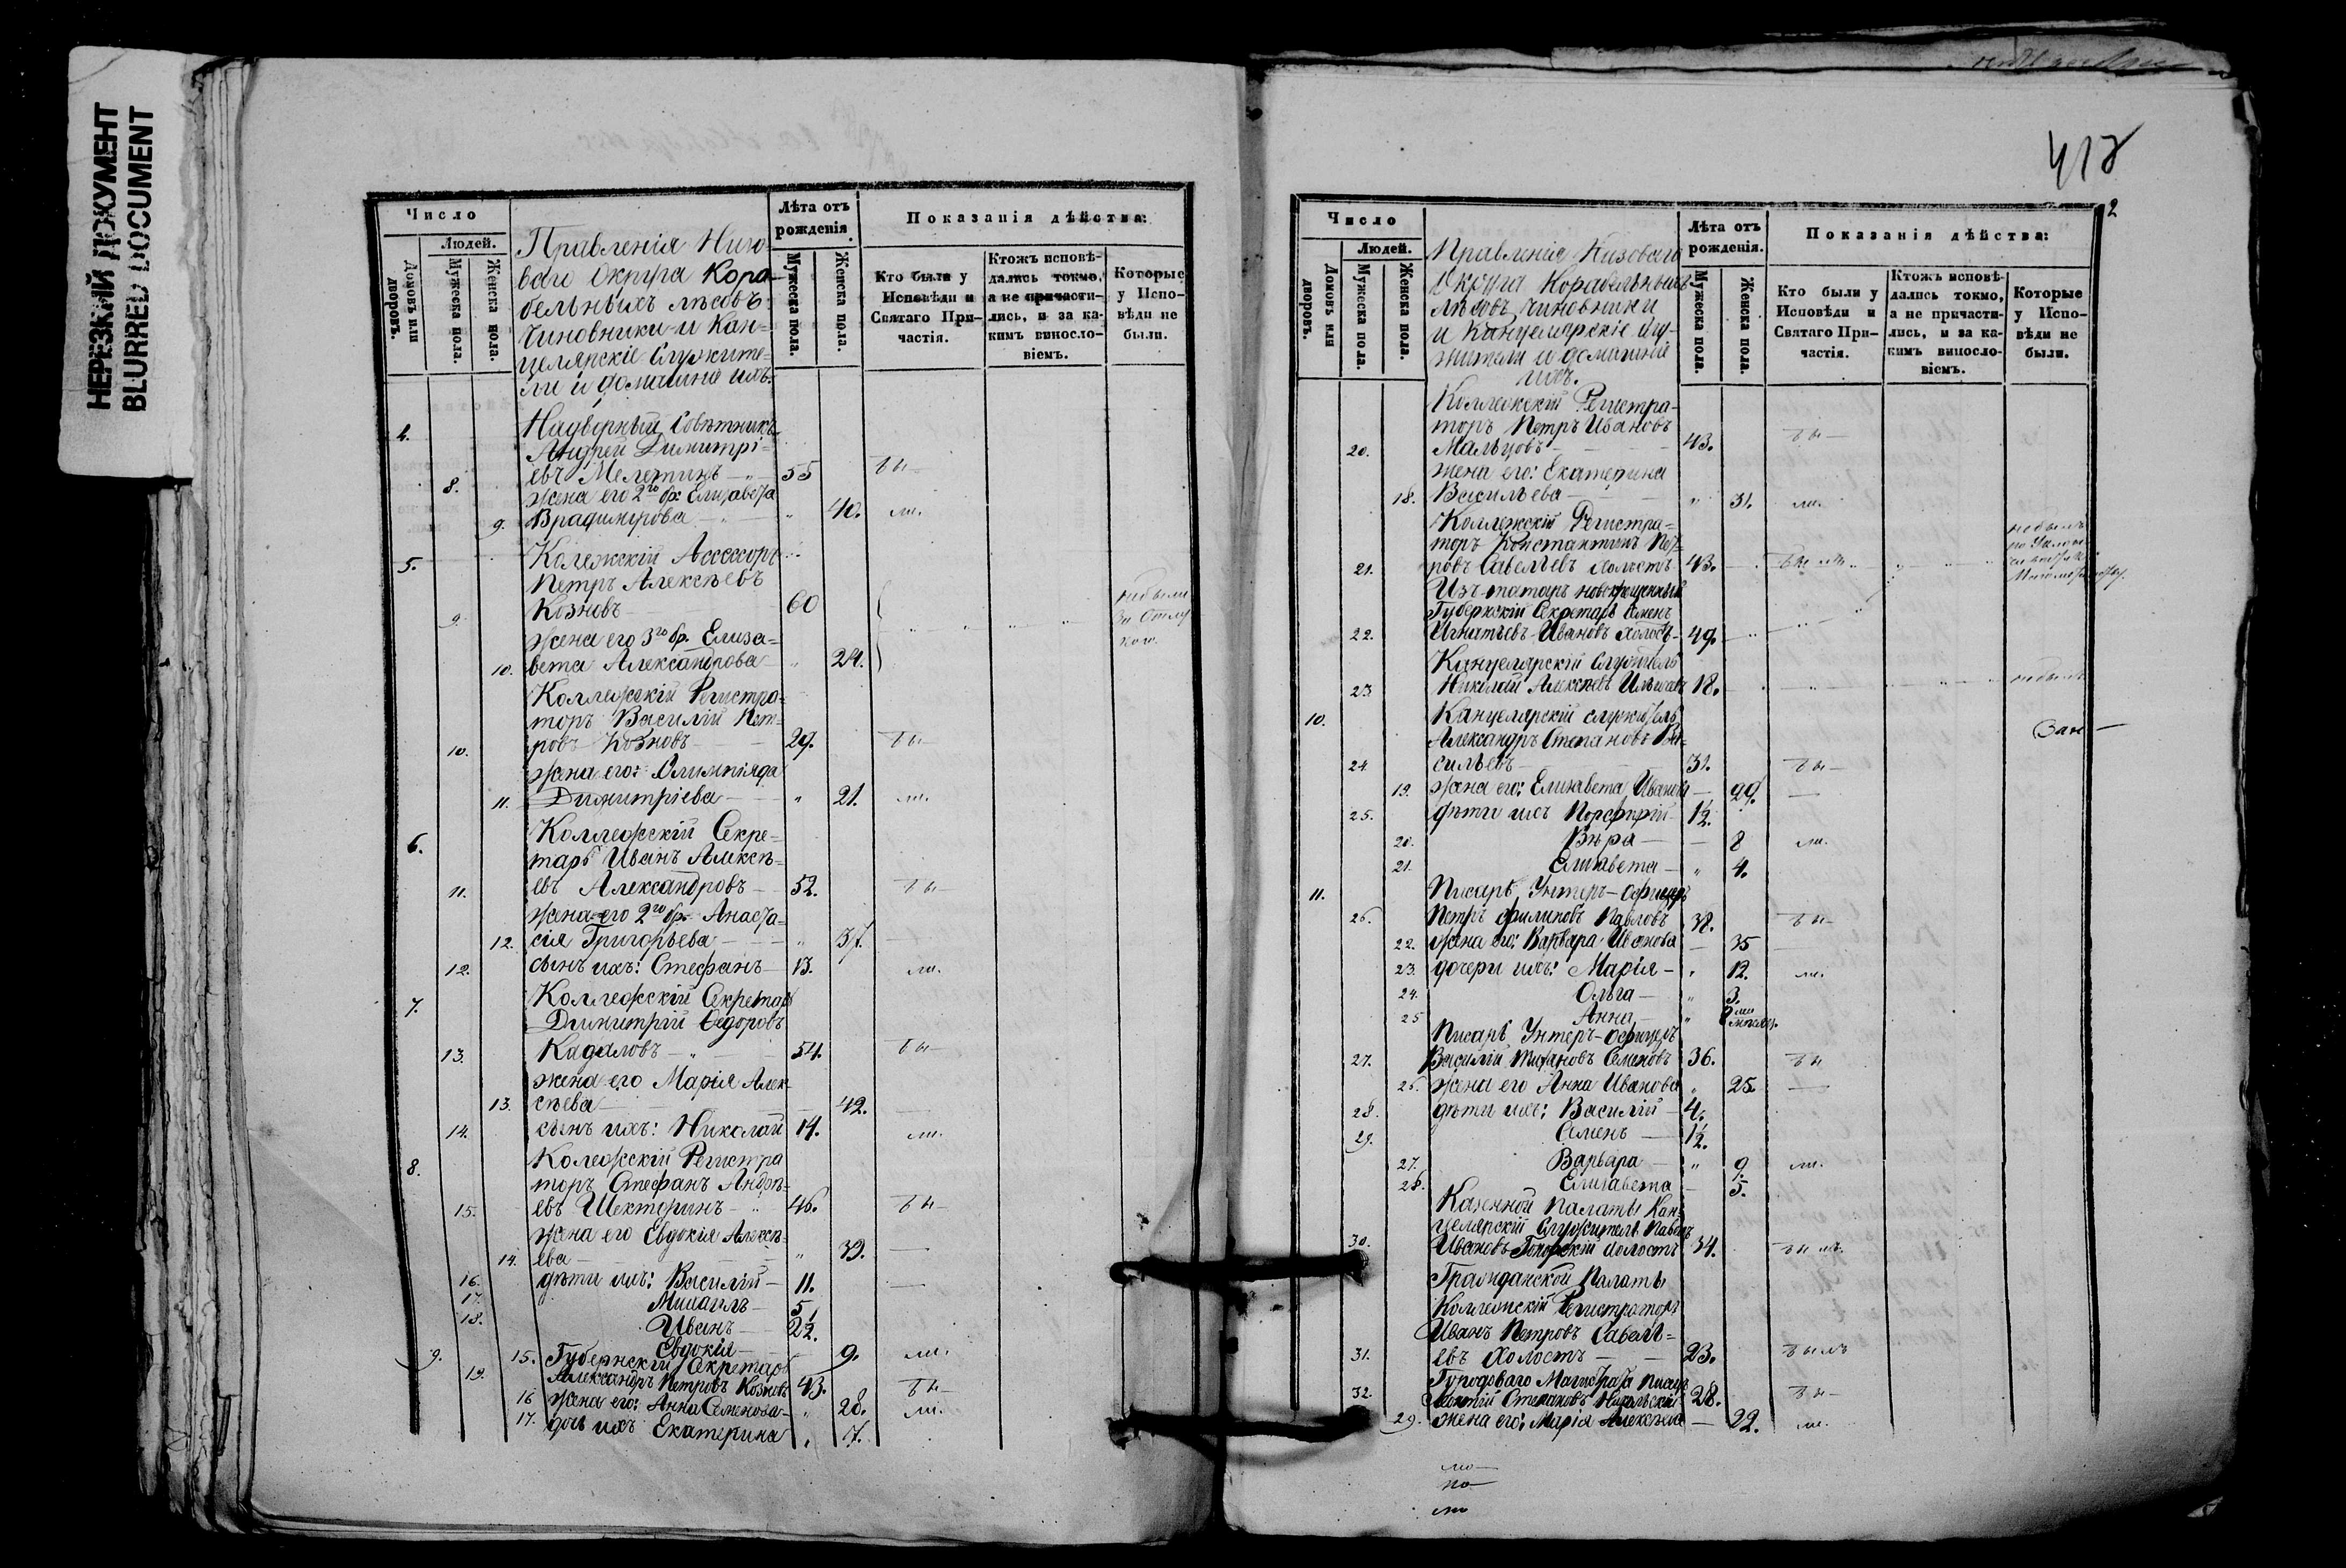 НЕРЕЗКИЙ ДОКУМЕНТ
BLURRED DOCUMENT
Число
Людей.
Домовъ или дворовъ.
Мужеска пола.
Женска пола.
Правленія Низо-
ваго Округа Кора-
бельныхъ лѣсовъ
Чиновники и Кан-
целярскіе Служите-
ли и домашніе ихъ.
Лѣта отъ рожденія.
Мужеска пола.
Женска пола.
Показанія дѣйства:
Кто были у Исповѣди и Святаго Причастія.
Ктожъ исповѣ-дались токмо, а не причасти-лись, и за ка-кимъ винословіемъ.
Которые у Испо-вѣди не были.
4. Надворный Совѣтникъ
Андрей Димитрі-
8. евъ Мелетинъ 55 бы-
жена его 2го бр: Елизавета
9. Владимірова " 40. ли.
5. Колежскій Ассесоръ
Петръ Алексѣевъ
9. Козновъ 60 небыли
жена его 3го бр. Елиза- за Отлу
10. вета Александрова " 24. кою.
Коллежскій Регистра-
торъ Василій Пет-
10. ровъ Козновъ 29. бы-
жена его: Олимпіада
11. Димитріева " 21. ли.
6. Коллежскій Секре-
тарь Иванъ Алексѣ-
11. евъ Александровъ 52. бы-
жена его 2го бр. Анаста-
12. сія Григорьева " 37.
12. сынъ ихъ: Стефанъ 13. ли.
7. Коллежскій Секретарь
Димитрій Ѳедоровъ
13. Кадаловъ 54. бы-
жена его Марія Алек
13. сѣева 42.
14. сынъ ихъ: Николай 14. ли.
8. Колежскій Регистра
торъ Стефанъ Андрѣ-
15. евъ Шектеринъ 46. бы-
жена его Евдокія Алексѣ-
14. ева " 39.
16. дѣти ихъ: Василій 11.
17. Михаилъ 5
18. Иванъ 2½.
15. Евдокія 9. ли.
9. Губернскій Секретарь
19. Александръ Петровъ Козновъ 43. бы-
16 жена его: Анна Семенова " 28. ли.
17. дочь ихъ Екатерина " 7.
418
2
Число
Людей.
Домовъ или дворовъ.
Мужеска пола.
Женска пола.
Правленія Низоваго
Округа Корабельныхъ
лѣсовъ, чиновники
и Канцелярскіе слу-
жители и домашніе
ихъ.
Лѣта отъ рожденія.
Мужеска пола.
Женска пола.
Показанія дѣйства:
Кто были у Исповѣди и Святаго При-частія.
Ктожъ исповѣ-дались токмо, а не причасти-лись, и за ка-кимъ винословіемъ.
Которые у Испо-вѣди не были.
Коллежскій Регистра-
торъ Петръ Ивановъ
20. Мальцовъ 43. бы-
жена его: Екатерина
18. Васильева " 31. ли.
Коллежскій Регистра-
торъ Константинъ Пет- небылъ
21. ровъ Савельевъ холостъ 43.
Изъ татаръ новокрещенный
Губернскій Секретарь Семенъ
22. Игнатьевъ Ивановъ холостъ 49.
Канцелярскій служитель
23. Николай Алексѣевъ 18. небылъ
10. Канцелярскій служитель
Александръ Степановъ Ва-
24. сильевъ 31. бы-
19. жена его: Елизавета Иванова 29.
25. дѣти ихъ Порфирій 1½.
20. Вѣра 8 ли.
21. Елизавета " 4.
11. Писарь Унтеръ-Офицеръ
26. Петръ Филиповъ Павловъ 38. бы-
22. жена его: Варвара Иванова 35
23. дочери ихъ: Марія " 12. ли.
24. Ольга " 3.
25 Анна "
Писарь Унтеръ-офицеръ
27. Василій Семеновъ 36. бы
26. жена его Анна Иванова " 25.
28. дѣти ихъ: Василій 4.
29. Семенъ 1½.
27. Варвара " 9. ли.
28. Елизавета 5.
Казенной Палаты Кан-
целярскій Служитель Павелъ
30. Ивановъ холостъ 34.
Гражданской Палаты
Коллежскій Регистраторъ
Иванъ Петровъ Савель-
31. евъ холостъ 23. былъ
Городоваго Магистрата писецъ
32. Степановъ 28. бы-
29. жена его: Марія Алексѣева 22. ли.